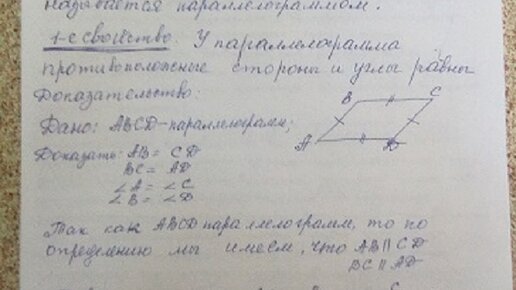 называется параллелограммом.
1-е свойство. У параллелограмма
противоположные стороны и углы равны
Доказательство:
Дано: ABCD-параллелограмм;
Доказать: AB = CD
BC = AD
∠A = ∠C
∠B = ∠D
B
C
A
D
Так как ABCD параллелограмм, то по
определению мы имеем, что AB || CD
BC || AD